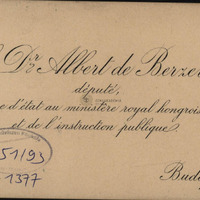 Dr Albert de Berze
député,
e d'état au ministère royal hongrois
et de l'instruction publique
51/93
1377
Bud